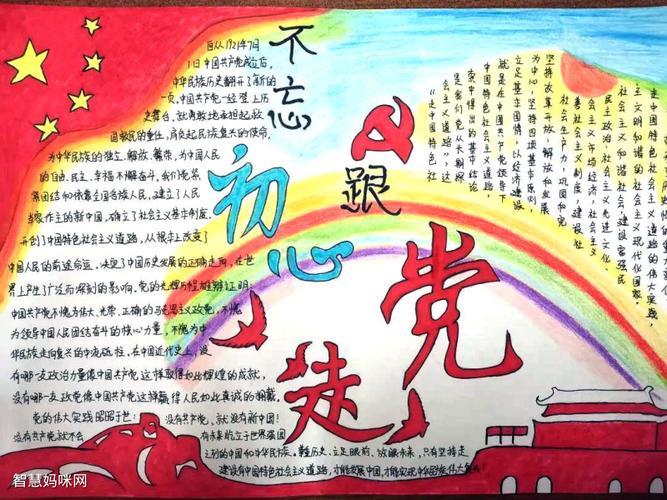 不忘
初心
跟
党
走
自从1921年7月
1日中国共产党成立后，
中华民族历史翻开了新的
一页，中国共产党一经登上历
史舞台，就勇敢地承担起救
国救民的重任，肩负起民族复兴的使命，
为中华民族的独立、解放、繁荣，为中国人民
的自由、民主、幸福不懈奋斗，我们党紧
紧团结和依靠全国各族人民，建立了人民
当家作主的新中国，确立了社会主义基本制度，
开创了中国特色社会主义道路，从根本上改变了
中国人民的前途命运，决定了中国历史发展的正确走向，在世
界上产生了广泛而深刻的影响，党的光辉历程雄辩证明：
中国共产党不愧为伟大、光荣、正确的马克思主义政党，不愧
为领导中国人民团结奋斗的核心力量，不愧为中
华民族走向复兴的中流砥柱，在中国近代史上，没
有哪一支政治力量像中国共产党这样取得如此辉煌的成就，
没有哪一支政党像中国共产党这样赢得人民如此真诚的拥戴，
党的伟大实践昭昭于世：没有共产党，就没有新中国！
没有共产党就不会有未来屹立于世界强国
之列的中国和中华民族。鞭历史，立足眼前，放眼未来，只有坚持走
建设有中国特色社会主义道路，才能发展中国，才能实现中华民族伟大复兴！
走中国特色
主文明和谐的社会主义现代化国家。
社会主义和谐社会，建设富强民
民主政治，社会主义先进文化，
会主义市场经济，社会主义
善社会主义制度，建设社
社会生产力，巩固和完
坚持改革开放，解放和发展
为中心，坚持四项基本原则
立足基本国情，以经济建设
就是在中国共产党领导下
中国特色社会主义道路，
索中得出的基本结论
是我们党从长期探
社会主义道路"，这
"走中国特色社
智慧妈咪网